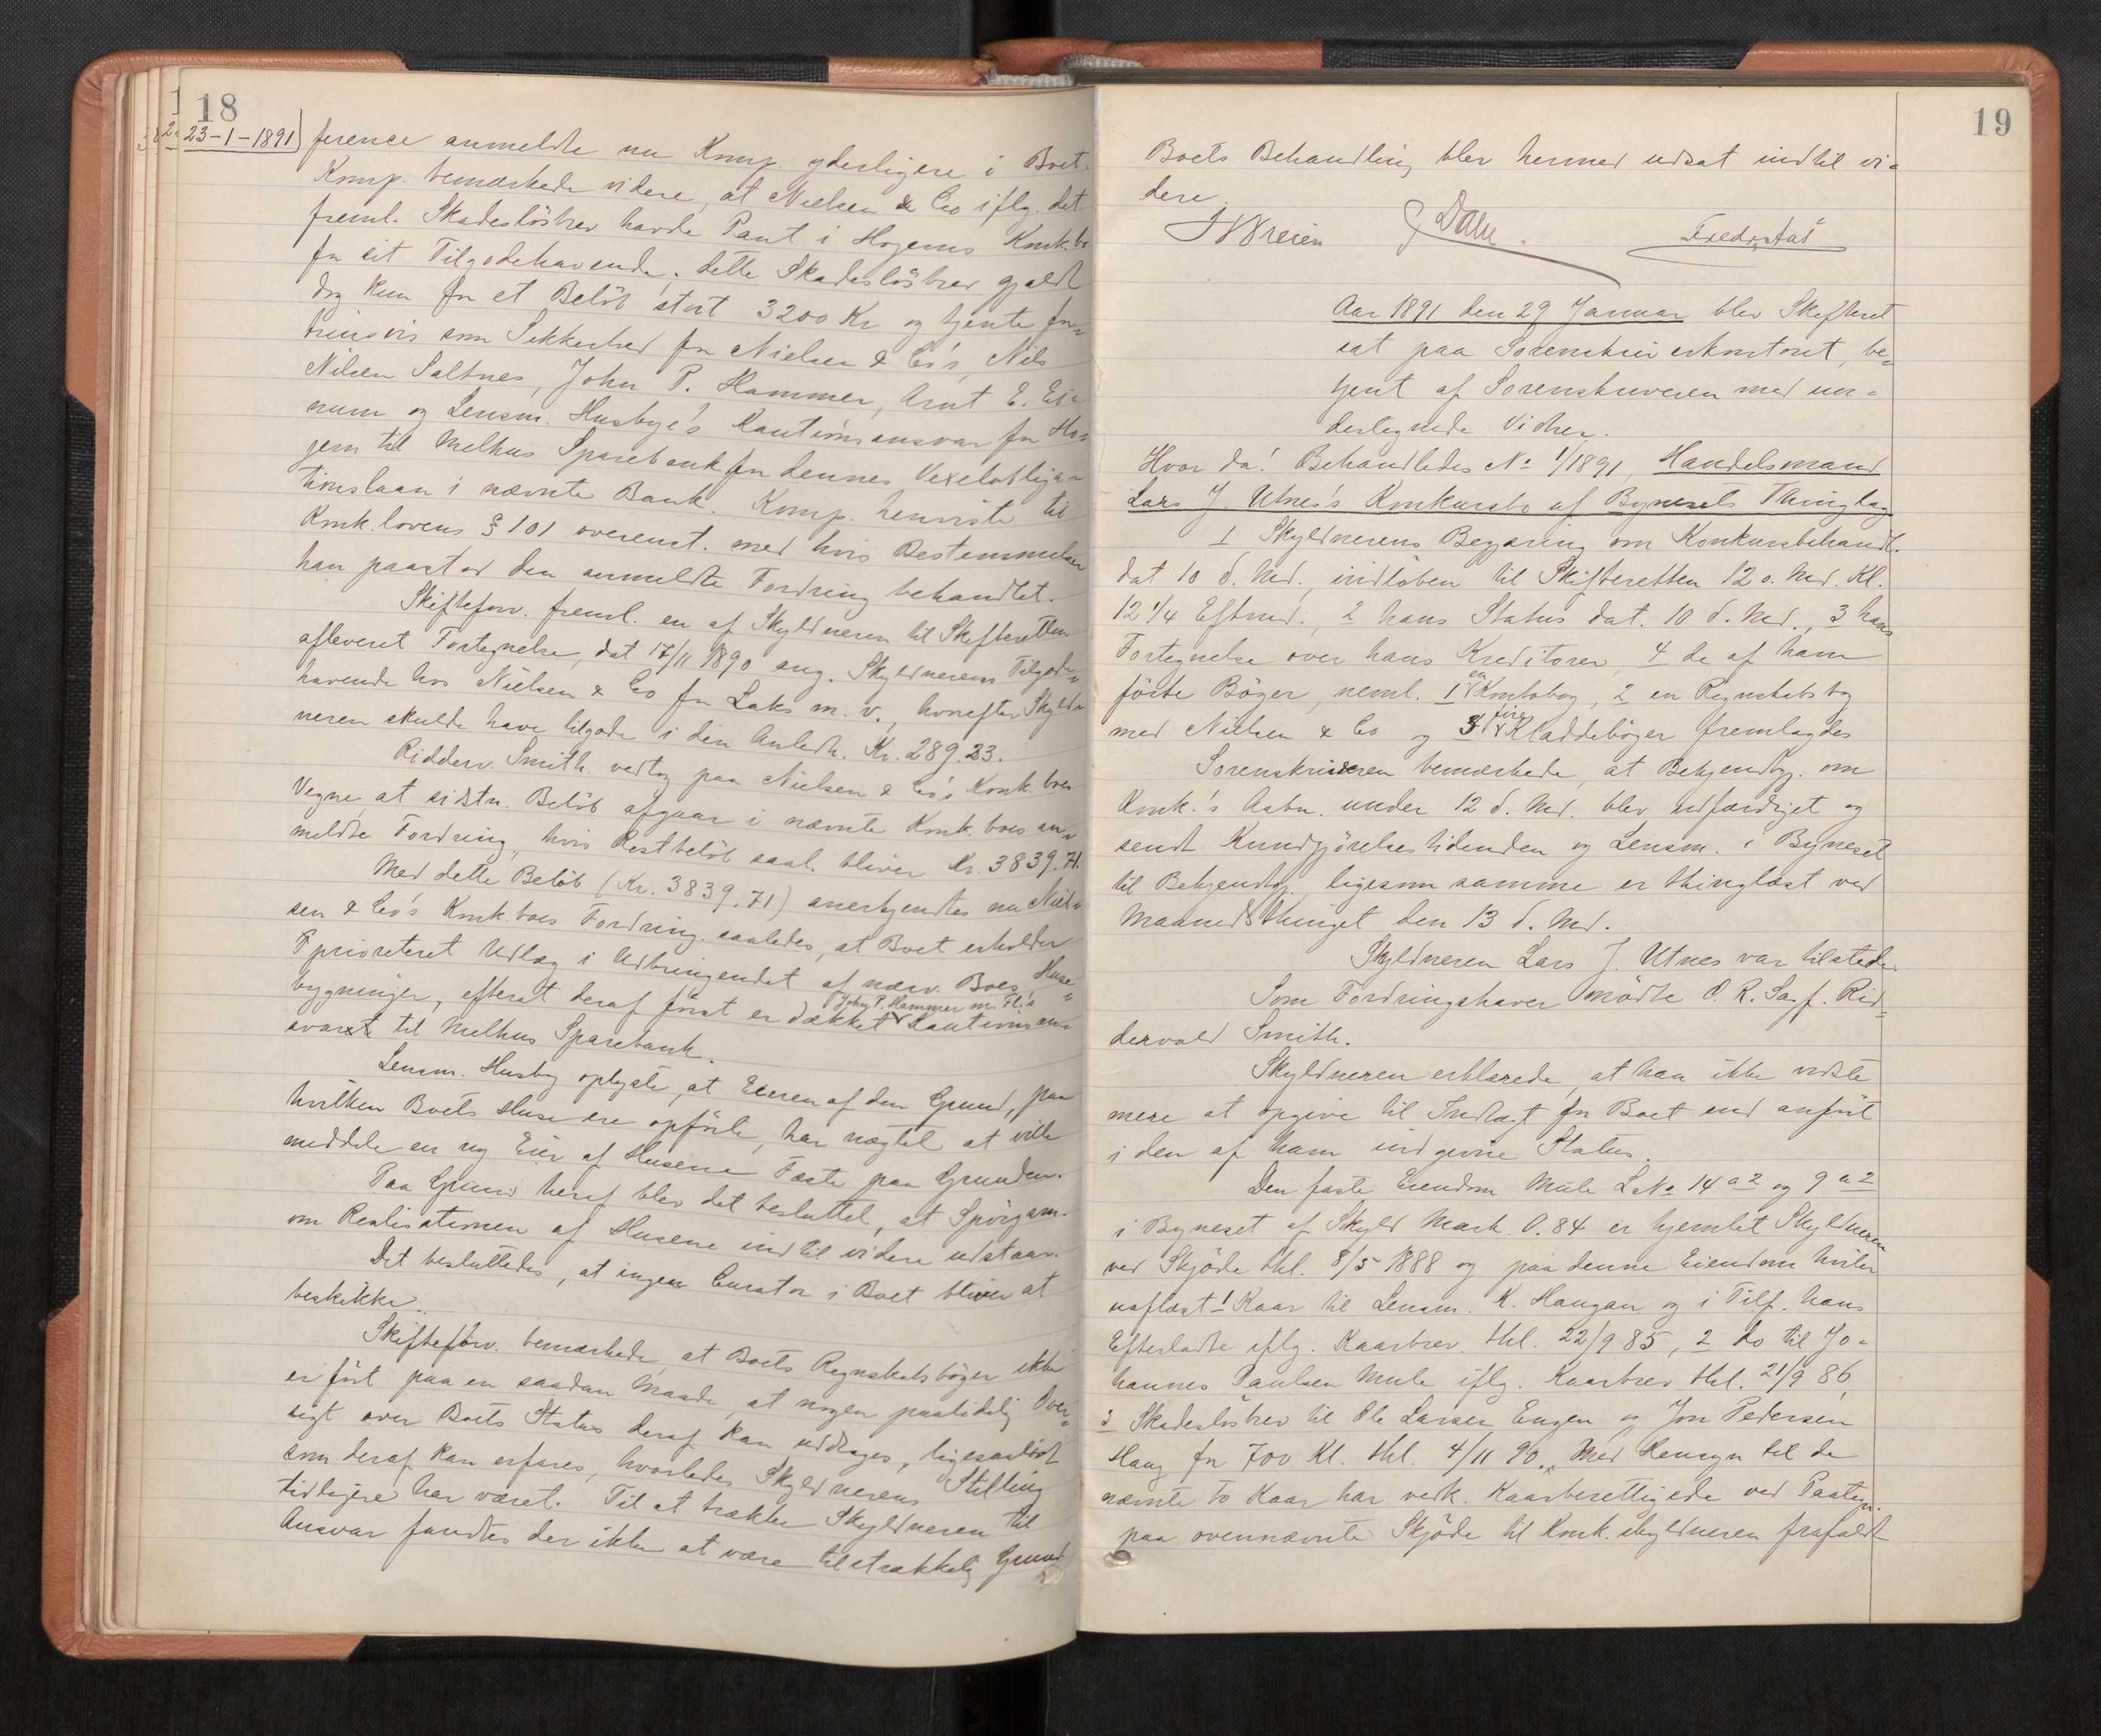 18
23-1-1891) ference anmeldte nu Komp. yderligere i Boet.
Komp. bemærkede videre, at Nielsen & Co iflg. det
freml. Skadesløsbrev havde Pant i Hogems Konk.bo
for sit Tilgodehavende; dette Skadesløsbrev gjaldt
dog kun for et Beløb stort 3200 Kr og tjente for-
trinsvis som Sikkerhed for Nielsen & Co's, Nils
Nilsen Saltnes, John P. Hammer, Arnt E. Ei-
num og Lensm. Husbye's Kautionsansvar for Ho-
gem til Melhus Sparebank for dennes Vexelobliga-
tionslaan i nævnte Bank. Komp. henviste til
Konk.lovens § 101 overenst. med hvis Bestemmelser
han paastod den anmeldte Fordring behandlet.
Skifteforv. freml. en af Skyldneren til Skifteretten
afleveret Fortegnelse, dat 17/11 1890 ang. Skyldnerens Tilgode-
havende hos Nielsen & Co for Laks m. v., hvorefter Skyld-
neren skulde have tilgode i den Anledn. Kr. 289.23.
Ridderv. Smith vedtog paa Nielsen & Co's Konk.boes
Vegne, at sidstn. Beløb afgaar i nævnte Konk.boes an-
meldte Fordring, hvis Restbeløb saal. bliver Kr. 3839.71.
Med dette Beløb (Kr. 3839.71) anerkjendtes nu Niel-
sen & Co's Konk.boes Fordring saaledes, at Boet erholder
prioriteret Udlæg i Udbringendet af nærv. Boes Huse-
bygninger, efterat deraf först er dækket John P. Hammer m. Fl.s Kautionsan-
svaret til Melhus Sparebank.
Lensm. Husby oplyste, at Eieren af den Grund, paa
hvilken Boets Huse ere opförte, har nægtet at ville
meddele en ny Eier af Husene Fæste paa Grunden.
Paa Grund heraf blev det besluttet, at Spörgsm.
om Realisationen af Husene indtil videre udstaar.
Det besluttedes, at ingen Curator i Boet bliver at
beskikke.
Skifteforv. bemærkede, at Boets Regnskabsböger ikke
er fört paa en saadan Maade, at nogen paalidelig Over-
sigt over Boets Status deraf kan uddrages, ligesaalidt
som deraf kan erfares, hvorledes Skyldnerens Stilling
tidligere har været. Til at trække Skyldneren til
Ansvar fandtes der ikke at være tilstrækkelig Grund
19
Boets Behandling blev hermed udsat indtil vi-
dere.
Dahl.
Aar 1891 den 29 Januar blev Skifteret
sat paa Sorenskriverkontoret, be-
tjent af Sorenskriveren med un-
dertegnede Vidner.
Hvor da! Behandledes No 1/1891, Handelsmand
Lars J. Utnes's Konkursbo af Bynesets Thinglag
1 Skyldnerens Begjæring om Konkursbehandl.
dat 10 d. Md., indløben til Skifteretten 12 s. Md. Kl.
12 1/4 Eftmd., 2 hans Status dat. 10 d. Md., 3 hans
Fortegnelse over hans Kreditorer, 4 de af ham
förte Böger, neml. 1 en Kontobog, 2 en Regnskabsbog
med Nielsen & Co og 3 fire Kladdebøger fremlagdes
Sorenskriveren bemærkede, at Bekjendtg. om
Konk.'s Aabn. under 12 d. Md. blev udfærdiget og
sendt Kundgjörelsestidenden og Lensm. i Byneset
til Bekjendtg. ligesom samme er thinglæst ved
Maanedsthinget den 13 d. Md.
Skyldneren Lars J. Utnes var tilstede.
Som Fordringshaver mødte O. R. Sagf. Rid-
dervold Smith.
Skyldneren erklærede, at han ikke vidste
mere at opgive til Indtægt for Boet end anført
i den af ham indgivne Status.
Den faste Eiendom Mule L No 14 a 2 og 9 a 2
i Byneset af Skyld Mark 0.84 er hjemlet Skyldneren
ved Skjöde thl. 8/5 1888 og paa denne Eiendom hviler
uaflæst 1 Kaar til Lensm. K. Haugan og i Tilf. hans
Efterladte iflg. Kaarbrev thl. 22/9 85, 2 do til Jo-
hannes Paulsen Mule iflg. Kaarbrev thl. 21/9 86,
3 Skadeslösbrev til Ole Larsen Engen og Jon Pedersen
Haug for 700 Kr. thl. 4/11 90. Med Hensyn til de
nævnte to Kaar har vedk. Kaarberettigede ved Paategn.
paa ovennævnte Skjöde til Konk.skyldneren frafaldt